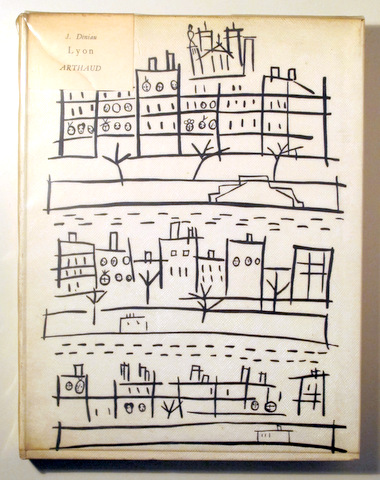 J. Deniau
Lyon
ARTHAUD